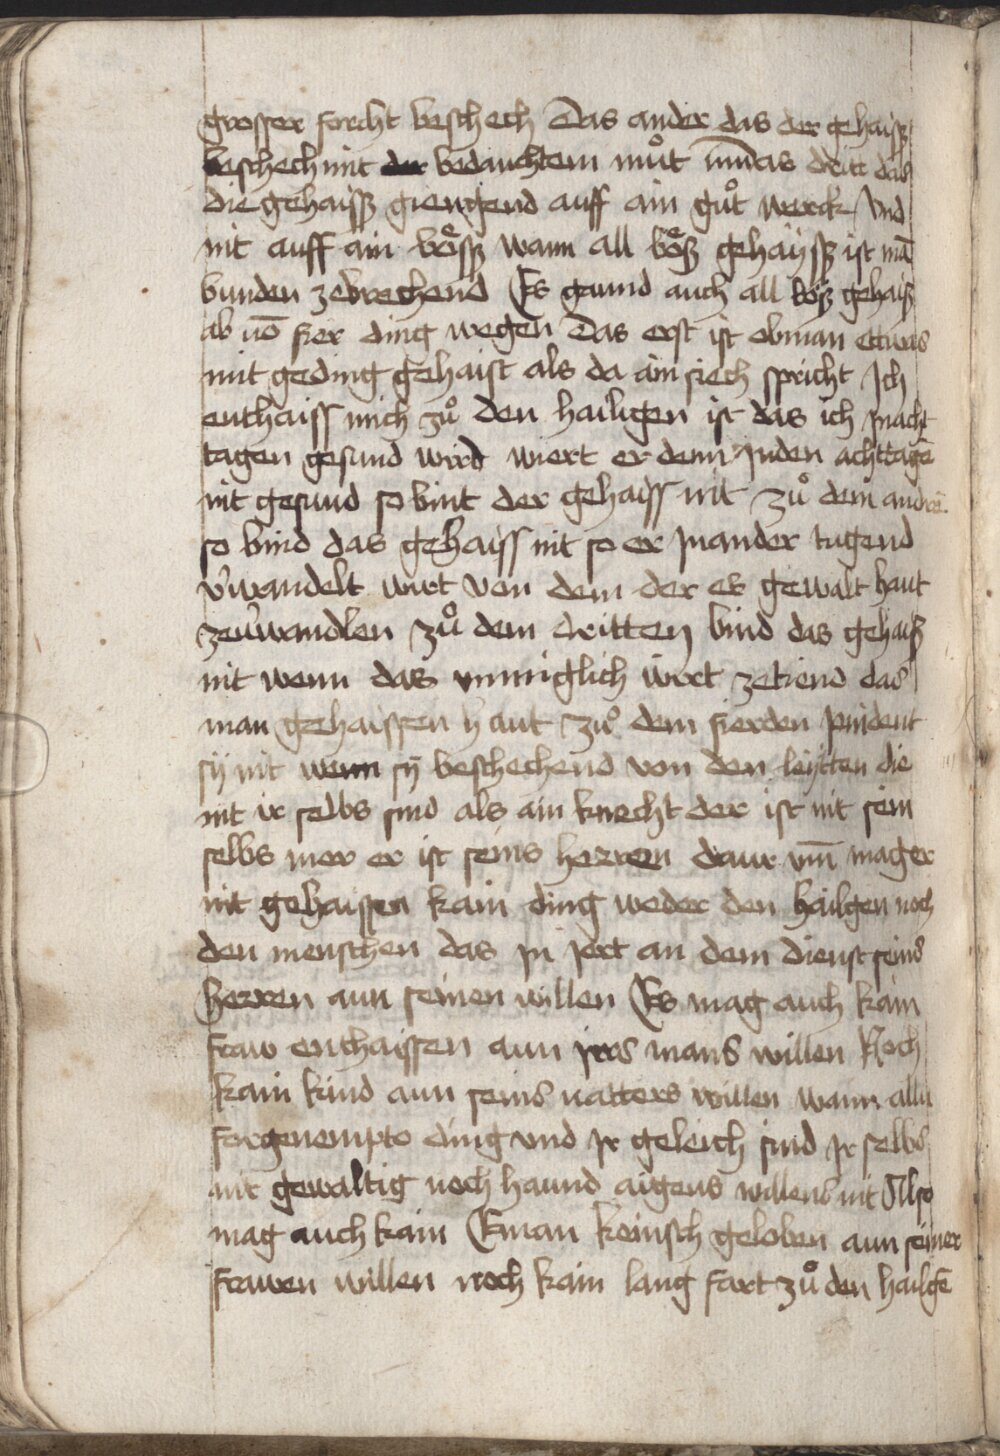 grosser forcht beschech Das ander das der gehaiß
beschech mit bedauchtem muͦt das dritt das
die gehaiß giengend auff ain guͦt werck Vnd
nit auff ain boͤß wann all boͤß gehayß ist
bunden zebrechend Es gaund auch all boͤß gehaiß
ab uō fier ding wegen Das erst ist ob man ettwas
mit geding gehaist als da ain siech spricht Ich
enthaiss mich zuͦ den hailigen ist das ich jn acht
tagen gesund wird wiert er denn jn den acht tagē
nit gesund so bint der gehaiss nit zuͦ dem andrē
so bind das gehaiss nit so er jn ander tugend
v'wandelt wirt von dem der es gewalt haut
zeuwandlen zuͦ dem dritten bind das gehaiß
nit wenn das vnmiglich wirt zetiend das
man gehaissen haut zuͦ dem fierden pindent
sÿ nit wenn sÿ beschechend von den leÿtten die
nit ir selbs sind als ain knecht der ist nit sein
selbs mer er ist seins herren daur vm̄ mag er
nit gehaissen kain ding weder den hailgen noch
den menschen das jn jert an dem dienst seins
herren aun seinen willen Es mag auch kain
fraw enthaissen aun jrs mans willen Noch
kain kind aun seins uatters willen wann alle
forgenempte ding vnd jr geleich sind jr selbs
nit gewaltig noch haund aigens willens nit Also
mag auch kain Eman keinsch geloben aun seiner
frawen willen noch kain lang fart zuͦ den hailgē